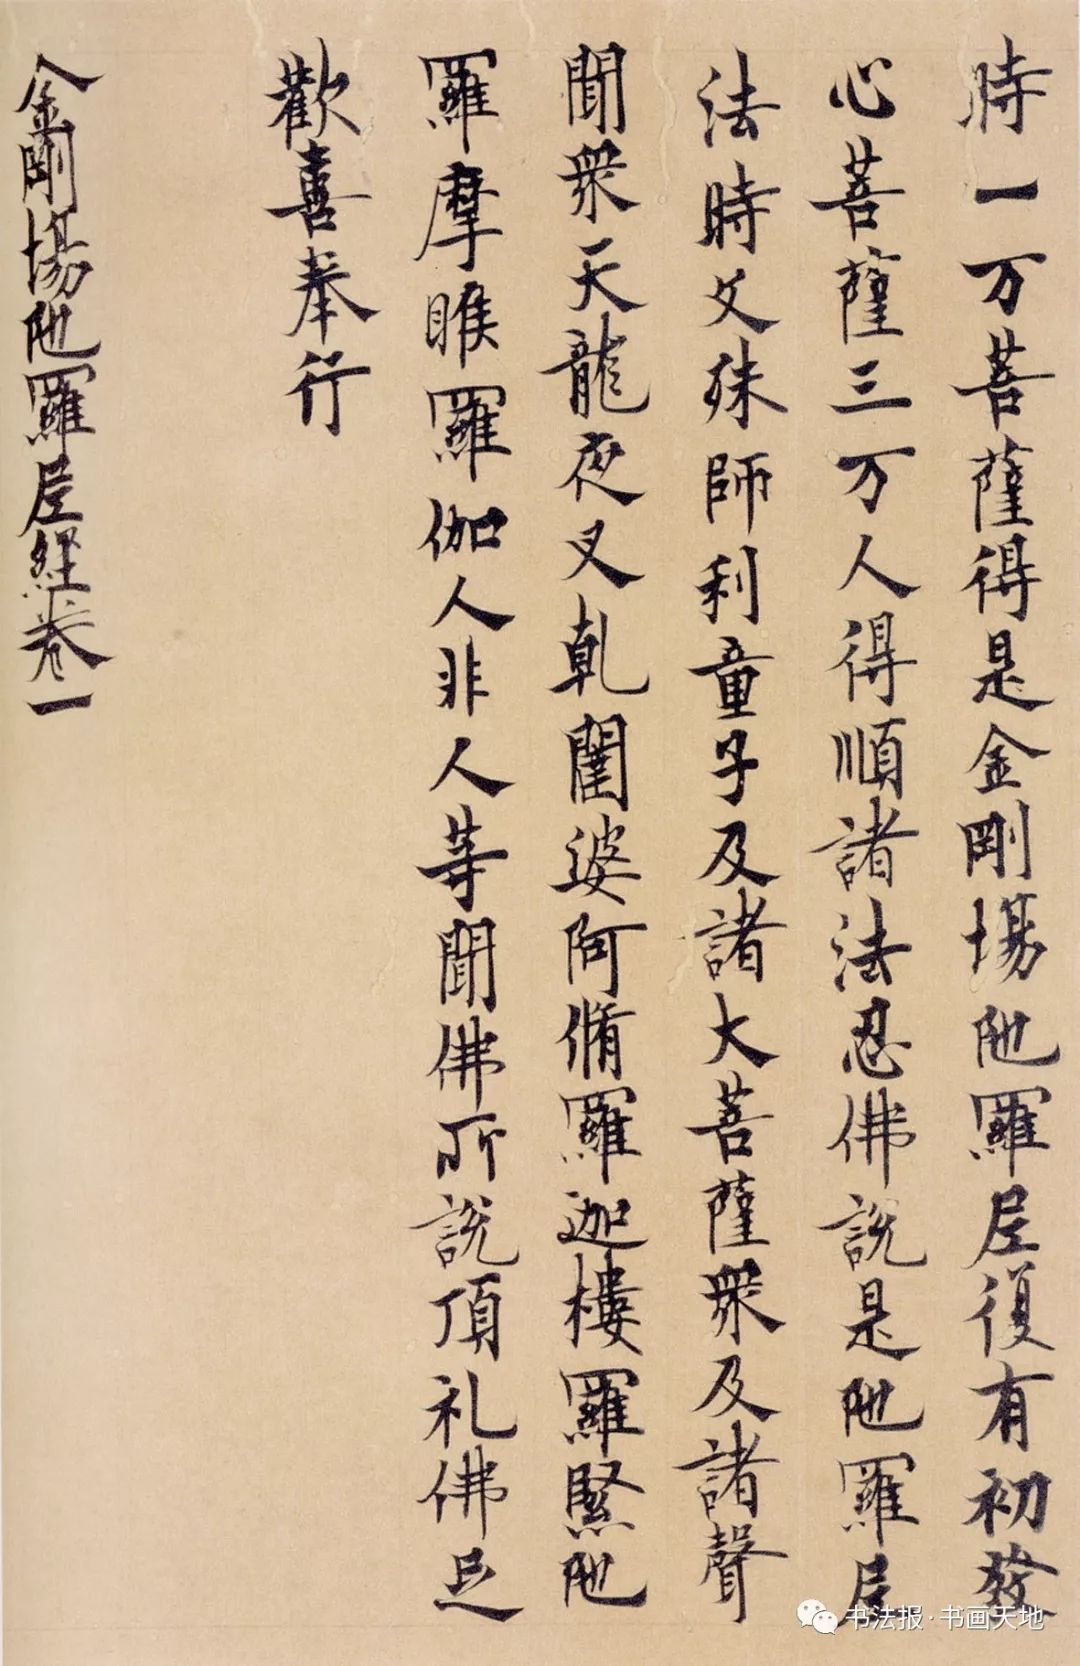 時一万菩薩得是金剛場陁羅尼復有初發
心菩薩三万人得順諸法忍佛說是陁羅尼
法時文殊師利童子及諸大菩薩衆及諸聲
聞衆天龍夜叉乹闥婆阿脩羅迦樓羅緊陁
羅摩睺羅伽人非人等聞佛所說頂礼佛足
歡喜奉行
金剛場陁羅尼経卷一
书法报·书画天地